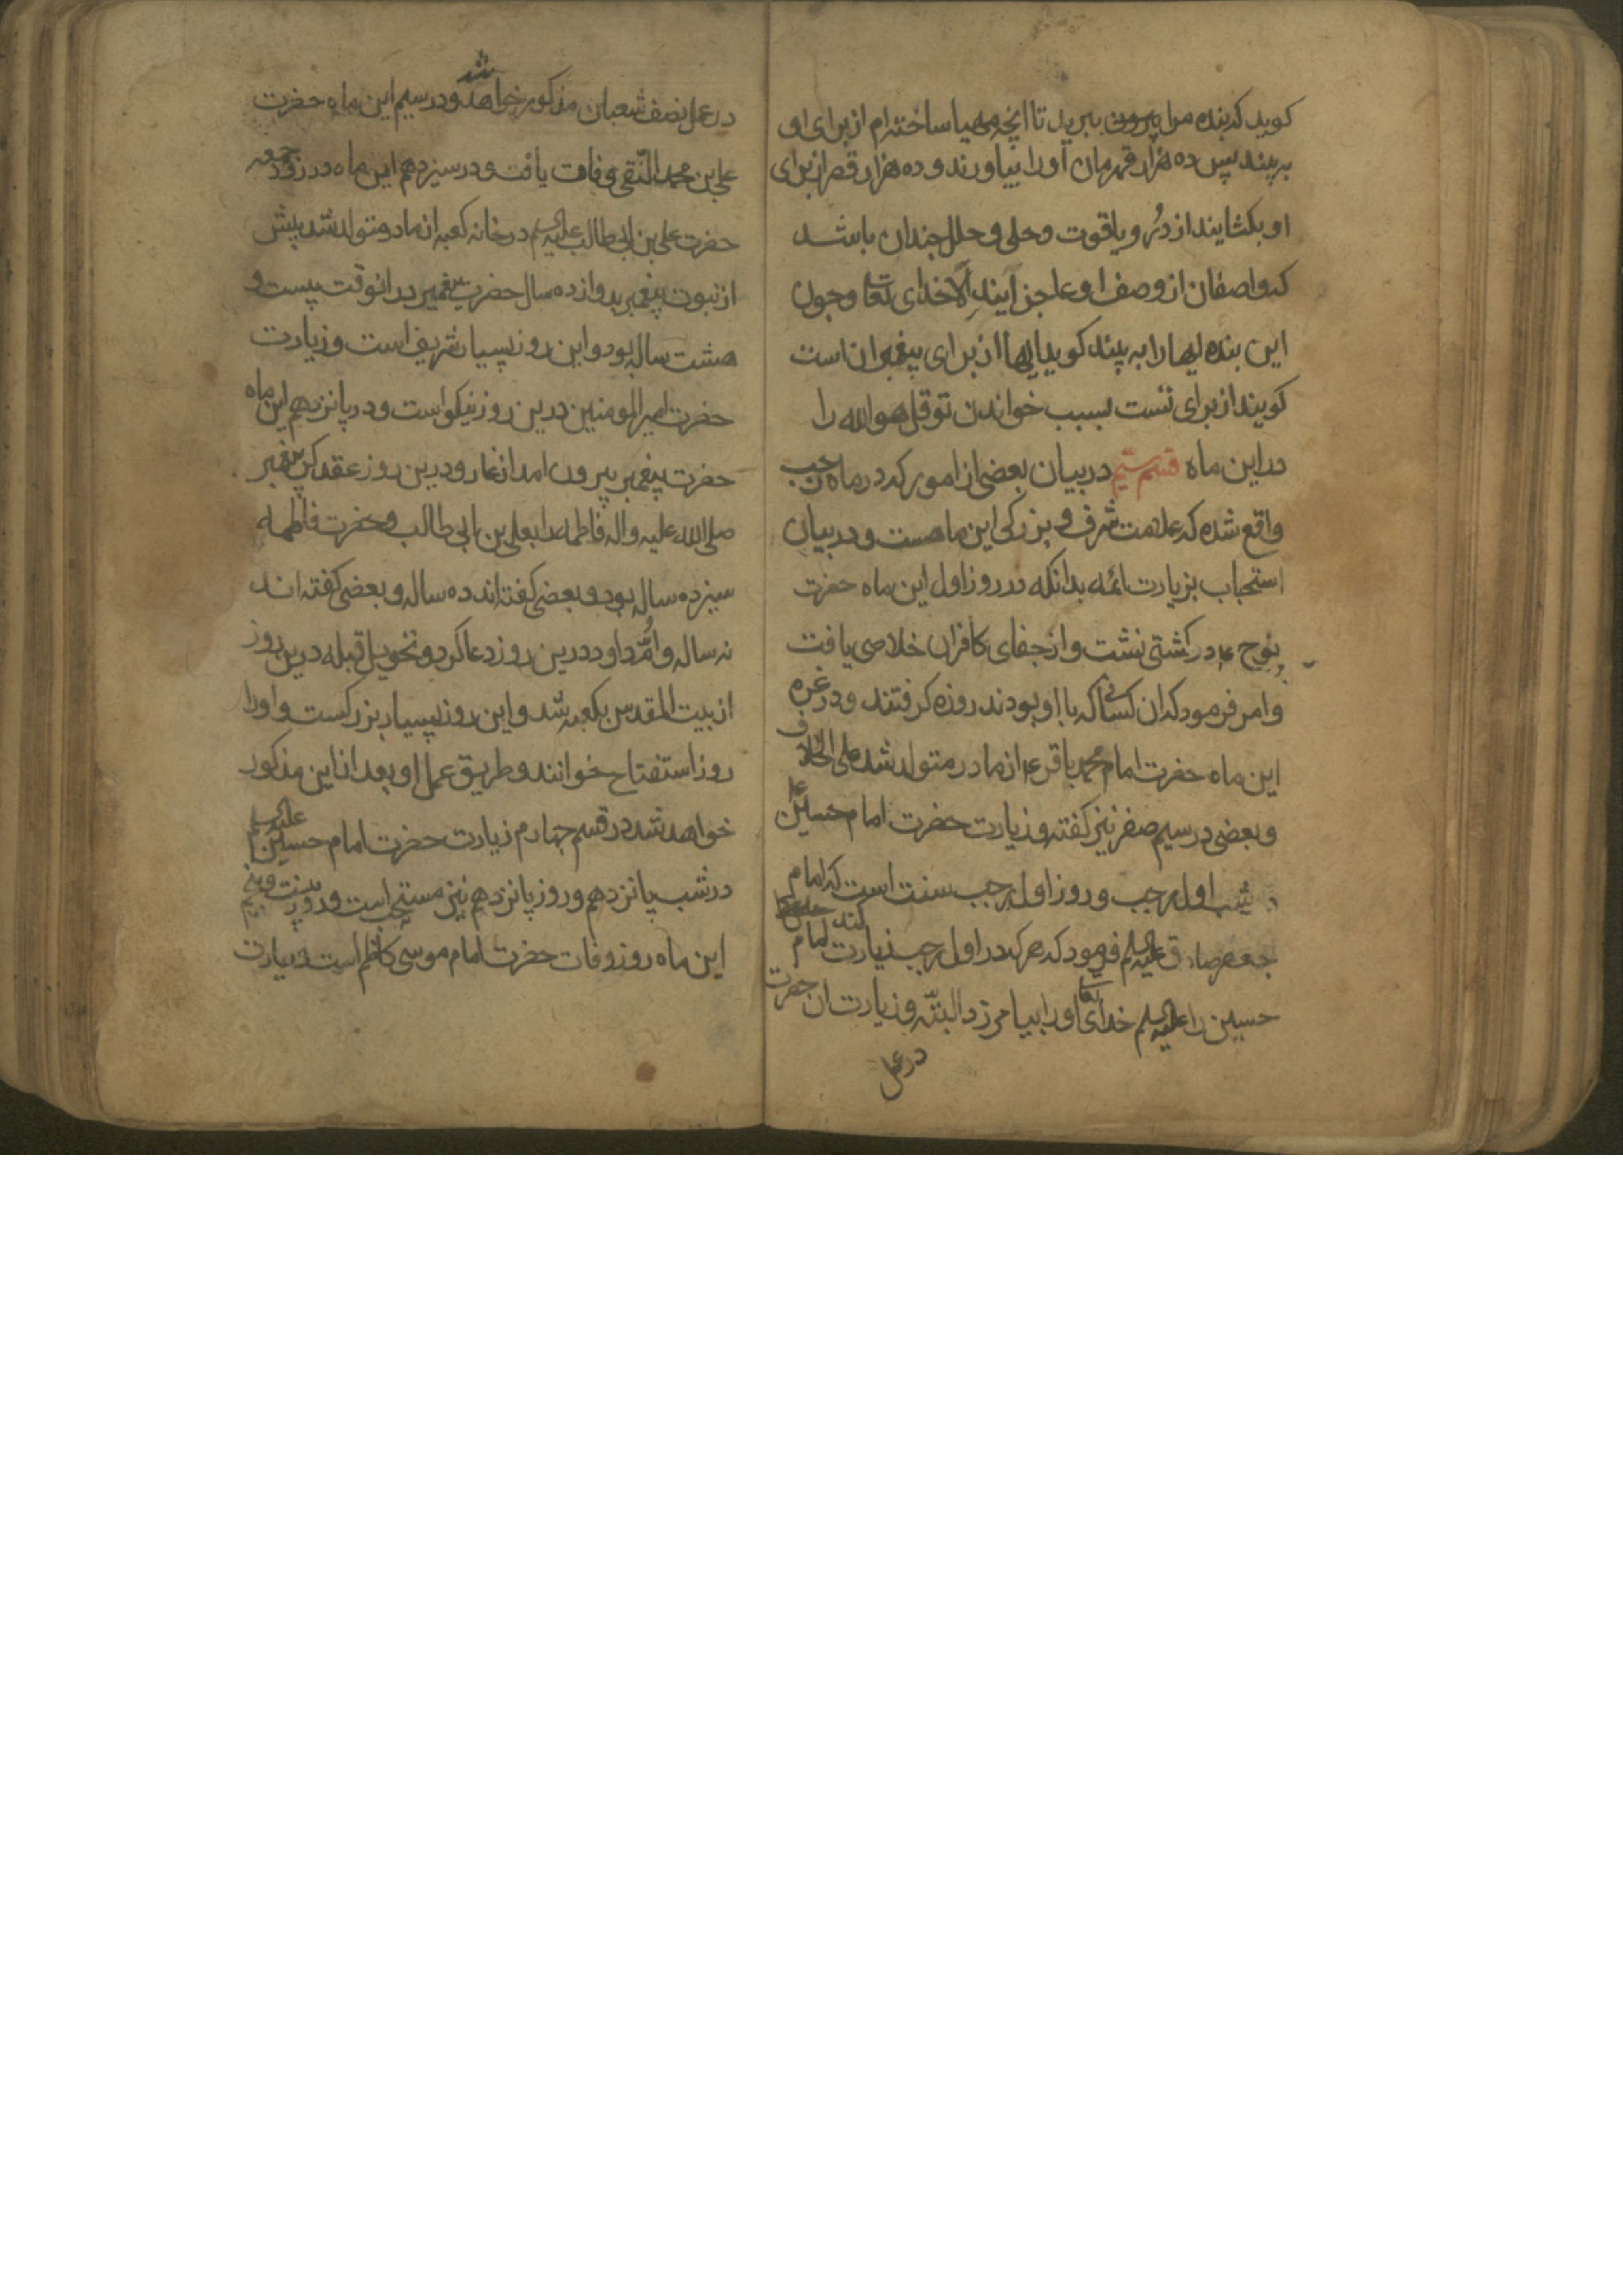 کوید که بنده مرا بیرون ببرید تا انچه مهیا ساخته‌ام از برای او
به پیند پس ده هزار قهرمان اورا بیاورند و ده هزار قصر از برای
او بکشایند از دُر و یاقوت و حلی و حلل چندان باشد
که واصفان از وصف او عاجز آیند اِلّا خدای تعا و چون
این بنده اینها را به پیند کوید اینها از برای پیغمبران است
کویند از برای تست بسبب خواندن تو قل هو الله را
در این ماه قسم سیّم در بیان بعضی از امور که در ماه رجب
واقع شده که علامت شرف و بزرکی این ماهست و در بیان
استحباب بزیارت ائمه بدانکه در روز اول این ماه حضرت
نوح ع در کشتی نشت و از جفای کافران خلاصی یافت
و امر فرمود که ان کسانی که با او بودند روزه کرفتند و در غره
این ماه حضرت امام محمد باقر ع از مادر متولد شد علی الخلاف
و بعضی در سیم صفر نیز کفته و زیارت حضرت امام حسین ع
در شب اول رجب و روز اول رجب سنت است که امام
جعفر صادق علیه السلم فرمود که هر که در اول رجب زیارت امام
حسین را علیه السلم کند خدای تعا اورا بیامرزد البتّه و زیارت ان حضرت
در عمل
در عمل نصف شعبان مذکور خواهد شد و در سیم این ماه حضرت
علی بن محمد النّقی وفات یافت و در سیزدهم این ماه در روز جمعه
حضرت علی بن ابی طالب علیه السلم در خانه کعبه از مادر متولد شد پیش
از نبوت پیغمبر بدوازده سال حضرت پیغمبر در انوقت بیست و
هشت ساله بود و این روز بسیار شریف است و زیارت
حضرت امیر المومنین درین روز نیکو است و در پانزدهم این ماه
حضرت پیغمبر بیرون امد از غار و درین روز عقد کرد پیغمبر
صلی الله علیه و اله فاطمه را بعلی بن ابی طالب و حضرت فاطمه
سیزده ساله بود و بعضی کفته اند ده ساله و بعضی کفته اند
نه ساله و اُمّ داود درین روز دعا کرد و تحویل قبله درین روز
از بیت المقدس بکعبه شد و این روز بسیار بزرکست و اورا
روز استفتاح خوانند و طریق عمل او بعد از این مذکور
خواهد شد در قسم چهارم زیارت حضرت امام حسین علیه السلم
در شب پانزدهم و روز پانزدهم نیز مستحب است و در بیست و پنجم
این ماه روز وفات حضرت امام موسی کاظم است و زیارت